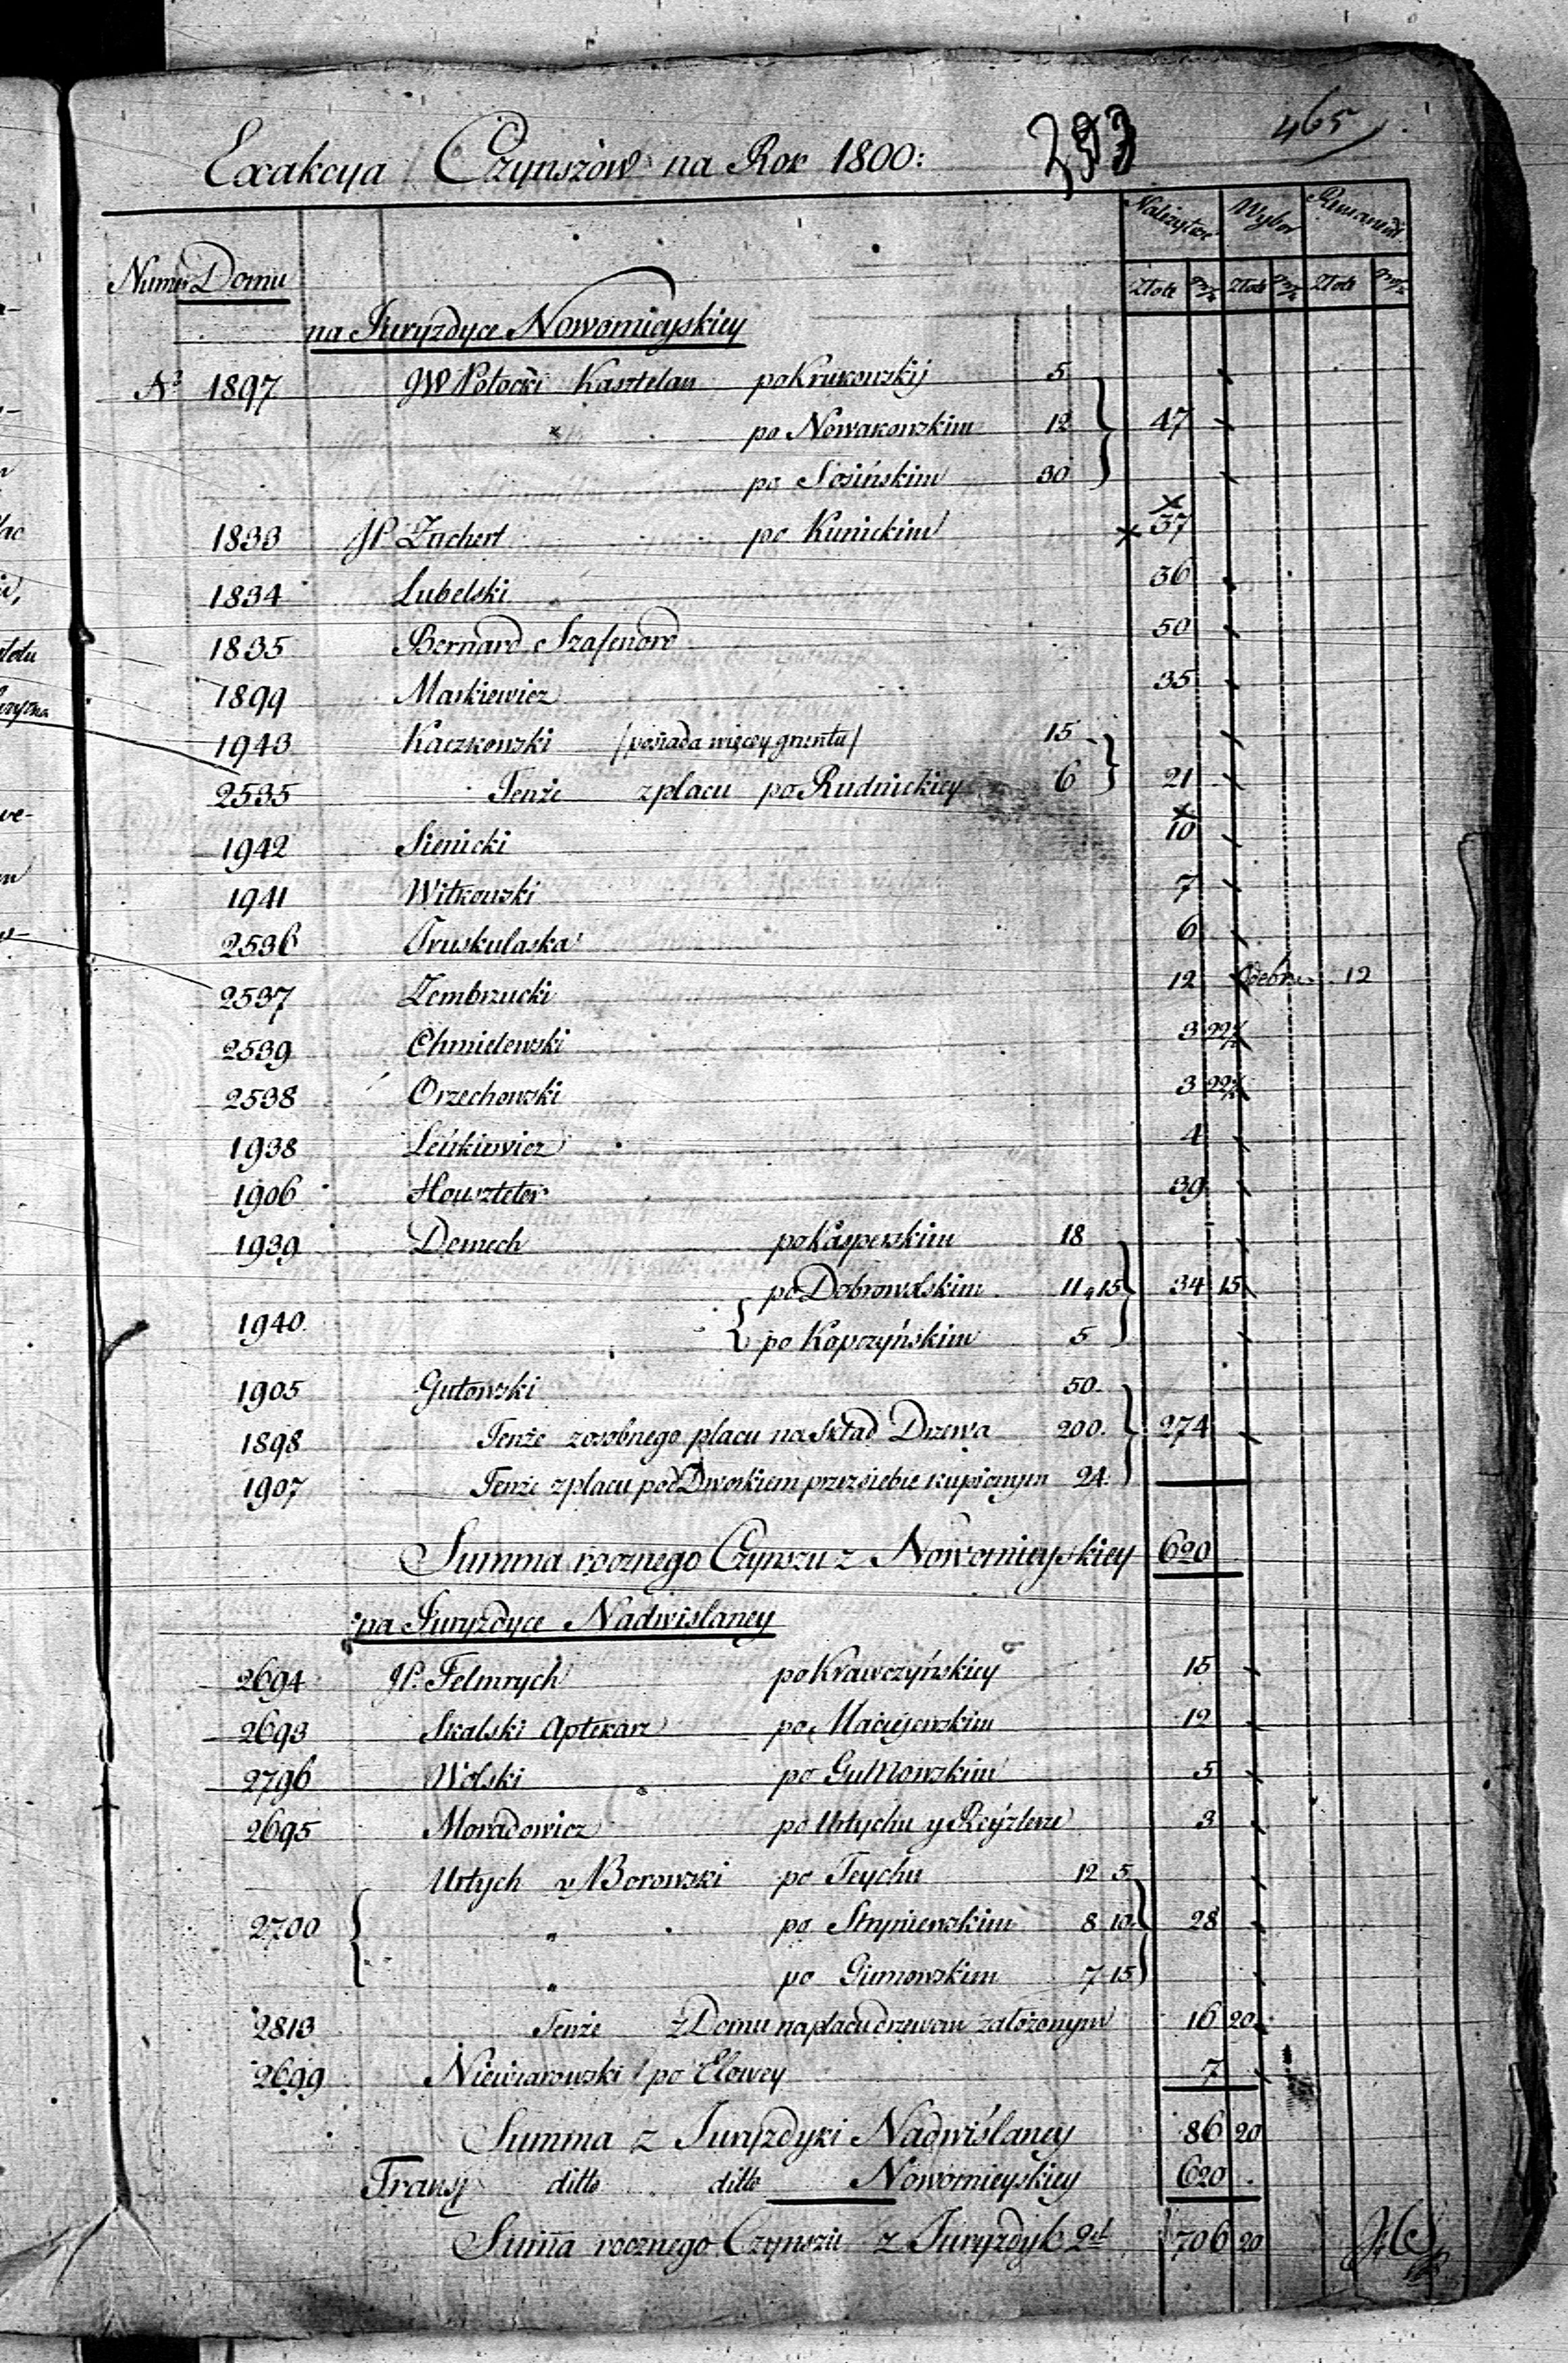 465
Exakcya Czynszów na Rok 1800:
Należytość Wybor Remanent
Numer Domu
Złote gr Złote gr Złote gr
na Juryzdyce Nowomieyskiey
No 1897 JW Potocki Kasztelan po Krukowskij 5
" po Nowakowskim 12 } 47
po Sosińskim 30
1833 JP. Zachert po Kunickim × 37
1834 Lubelski 36
1835 Bernard Szafenord 50
1899 Markiewicz 35
1943 Kaczkowski /posiada więcey gruntu/ 15
2535 Tenże z placu po Rudnickiey 6 } 21
1942 Sienicki 10
1941 Witkowski 7
2536 Truskulaska 6
2537 Zembrzucki 12 12
2539 Chmielewski 3 22½
2538 Orzechowski 3 22½
1938 Leńkiewicz 4
1906 Houszteter 39
1939 Demech po Kasperskim 18
po Dobrowolskim 11,15 } 34 15
1940 { po Kopczyńskim 5
1905 Gutowski 50
1898 Tenże z osobnego placu na skład Drzewa 200. } 274
1907 Tenże z placu pod Dworkiem przez siebie kupionym 24.
Summa rocznego Czynszu z Nowomieyskiey 620
na Juryzdyce Nadwislaney
2694 JP. Felmrych po Krawczyńskiey 15
2693 Skalski Aptekarz po Maciejewskim 12
2796 Wolski po Gutkowskim 5
2695 Moradowicz po Urtychu y Reyzlerze 3
Urtych y Borowski po Teychu 12 5
2700 { " po Stryniewskim 8 10 } 28
" po Gumowskim 7 15
2813 Tenże z Domu na placu drzewem założonym 16 20
2699 Niewiarowski / po Elowey 7
Summa z Juryzdyki Nadwiślaney 86 20
Transp ditto ditto Nowomieyskiey 620
Summa rocznego Czynszu z Juryzdyk 2ch 706 20